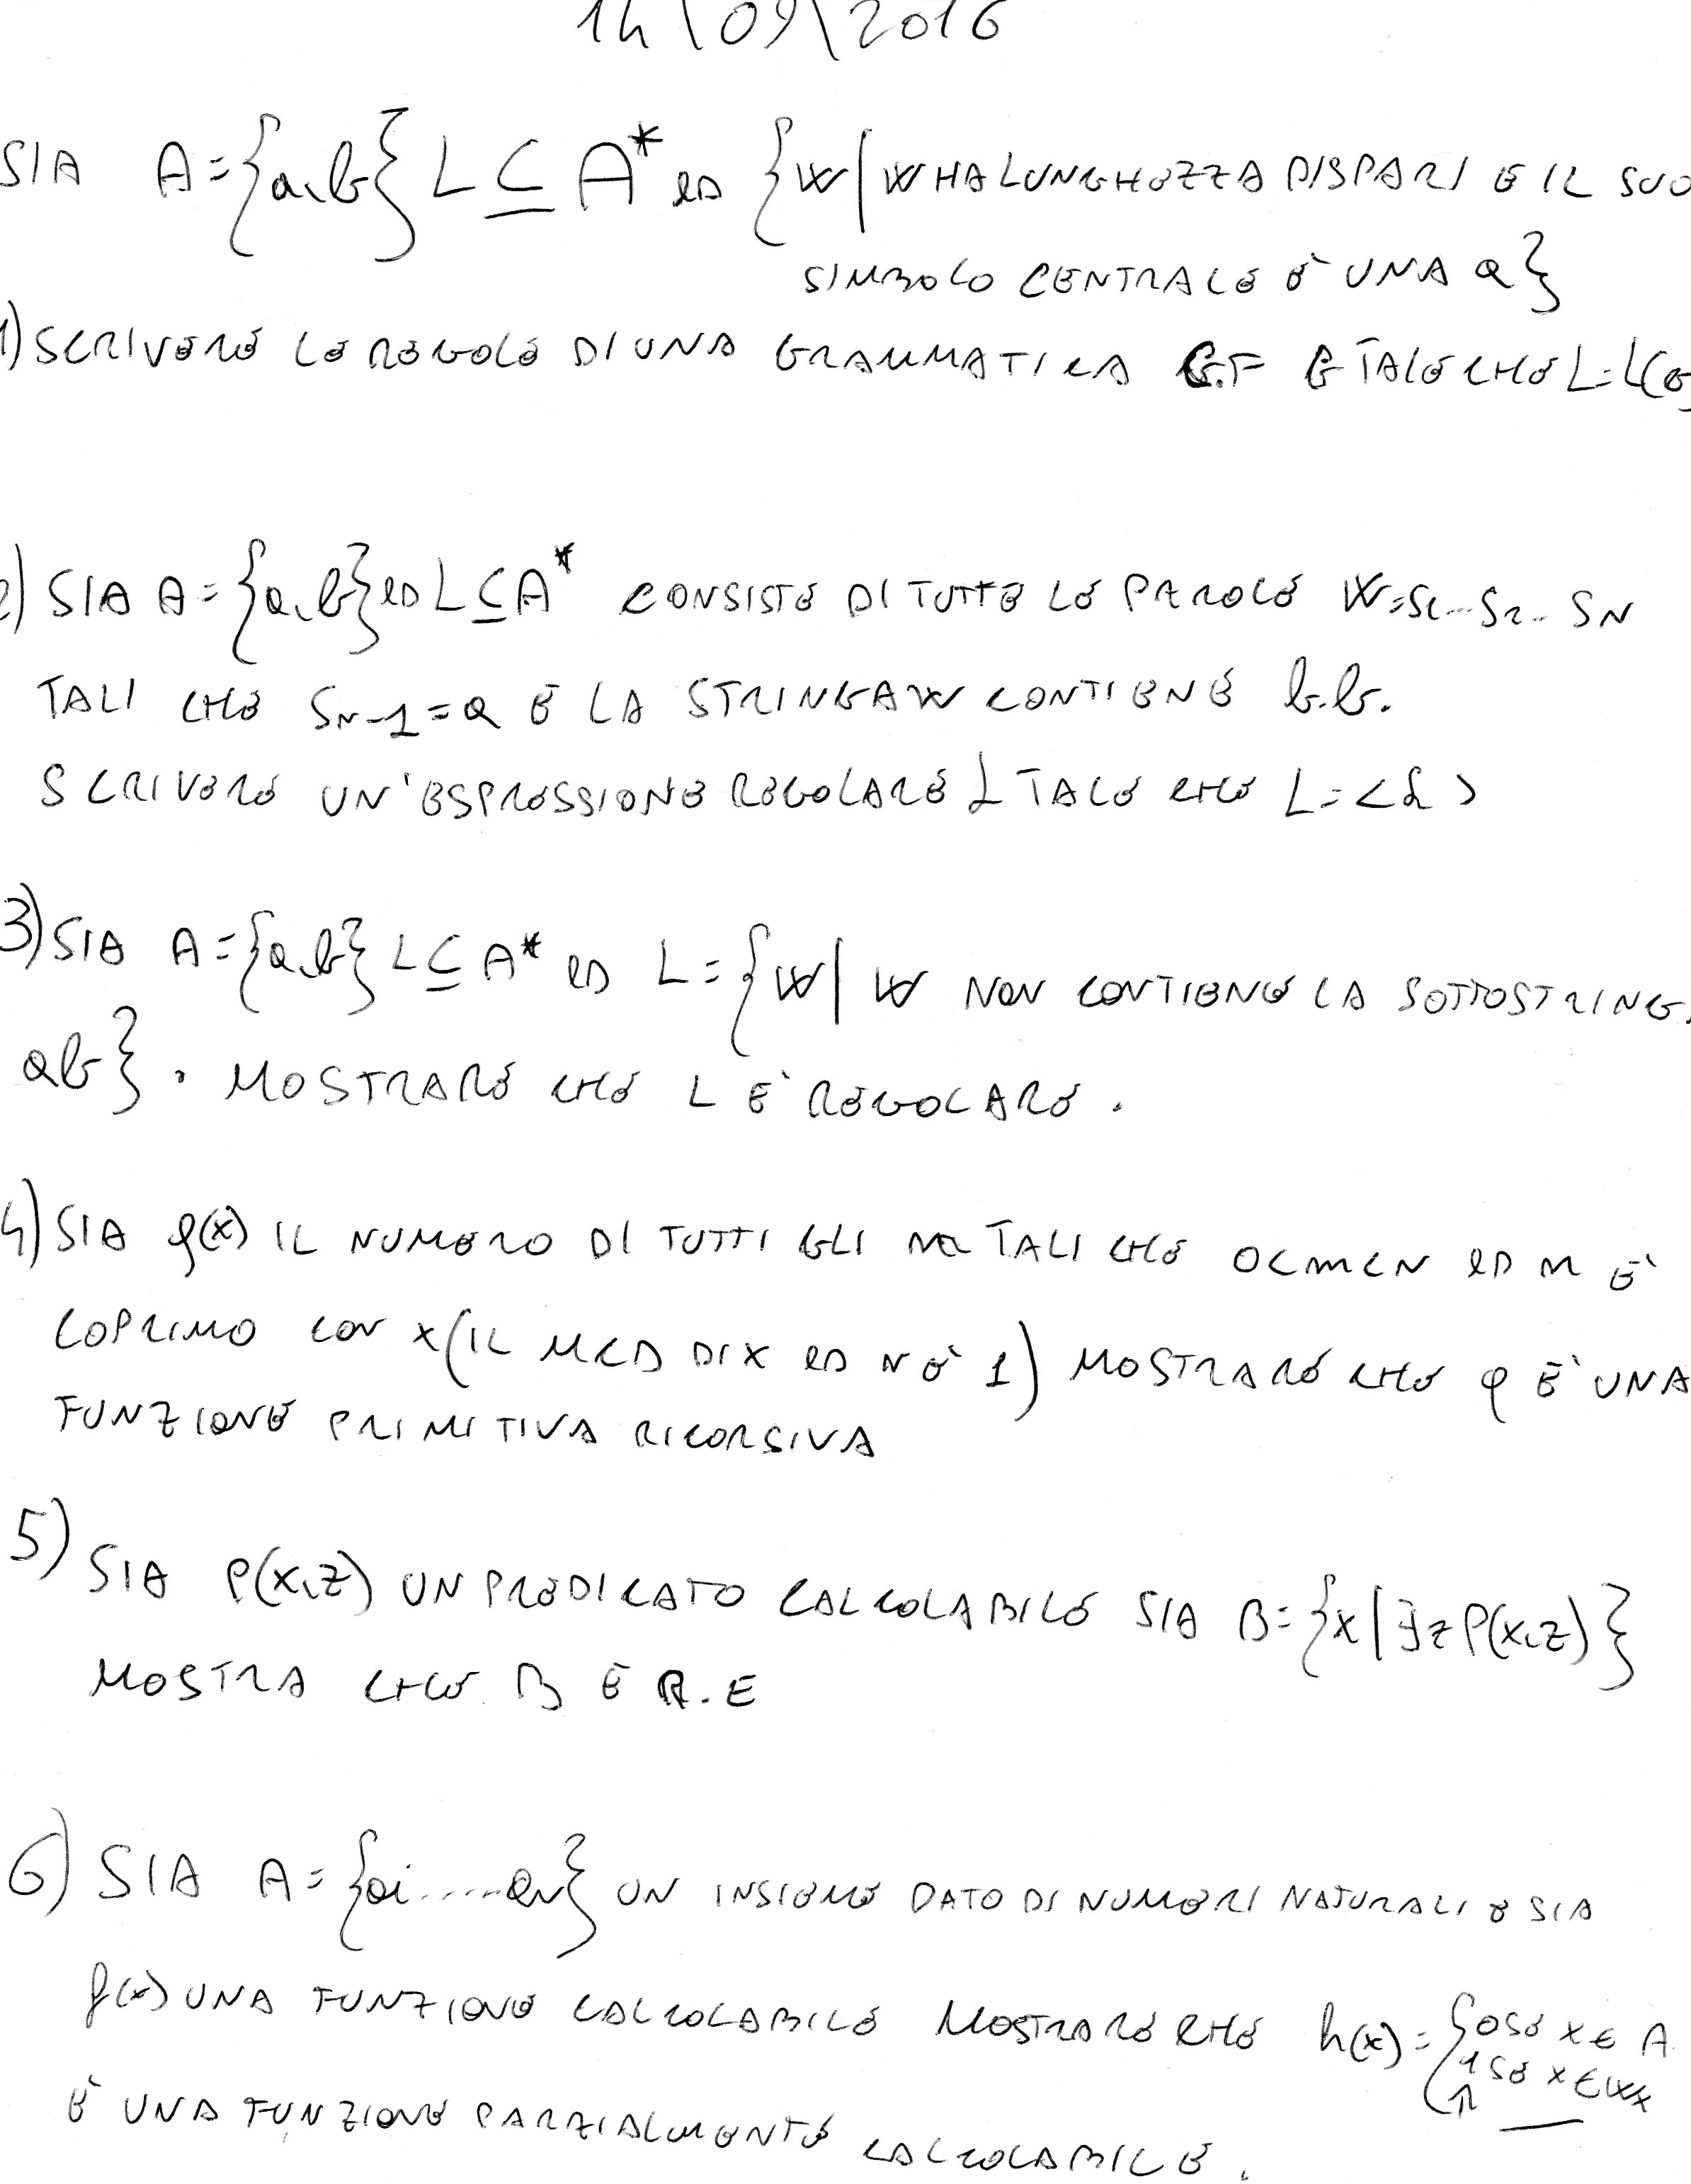 14\09\2016
SIA A={a,b} L⊆A* ED {W | W HA LUNGHEZZA DISPARI E IL SUO
SIMBOLO CENTRALE È UNA a}
1) SCRIVERE LE REGOLE DI UNA GRAMMATICA C.F G TALE CHE L=L(G)
2) SIA A={a,b} ED L⊆A* CONSISTE DI TUTTE LE PAROLE W=S1...S2..SN
TALI CHE SN-1=a E LA STRINGA W CONTIENE b.b.
SCRIVERE UN'ESPRESSIONE REGOLARE L TALE CHE L=<L>
3) SIA A={a,b} L⊆A* ED L={W | W NON CONTIENE LA SOTTOSTRING
ab}. MOSTRARE CHE L È REGOLARE.
4) SIA φ(x) IL NUMERO DI TUTTI GLI TALI CHE 0<m<N ED M È
COPRIMO CON x (IL MCD DI X ED N È 1) MOSTRARE CHE φ È UNA
FUNZIONE PRIMITIVA RICORSIVA
5) SIA P(x,z) UN PREDICATO CALCOLABILE SIA B={x | ∃z P(x,z)}
MOSTRA CHE B È R.E
6) SIA A={ai.....an} UN INSIEME DATO DI NUMERI NATURALI E SIA
f(x) UNA FUNZIONE CALCOLABILE MOSTRARE CHE h(x)={0 SE x∈A
1 SE x∈Wx
↑
È UNA FUNZIONE PARZIALMENTE CALCOLABILE.